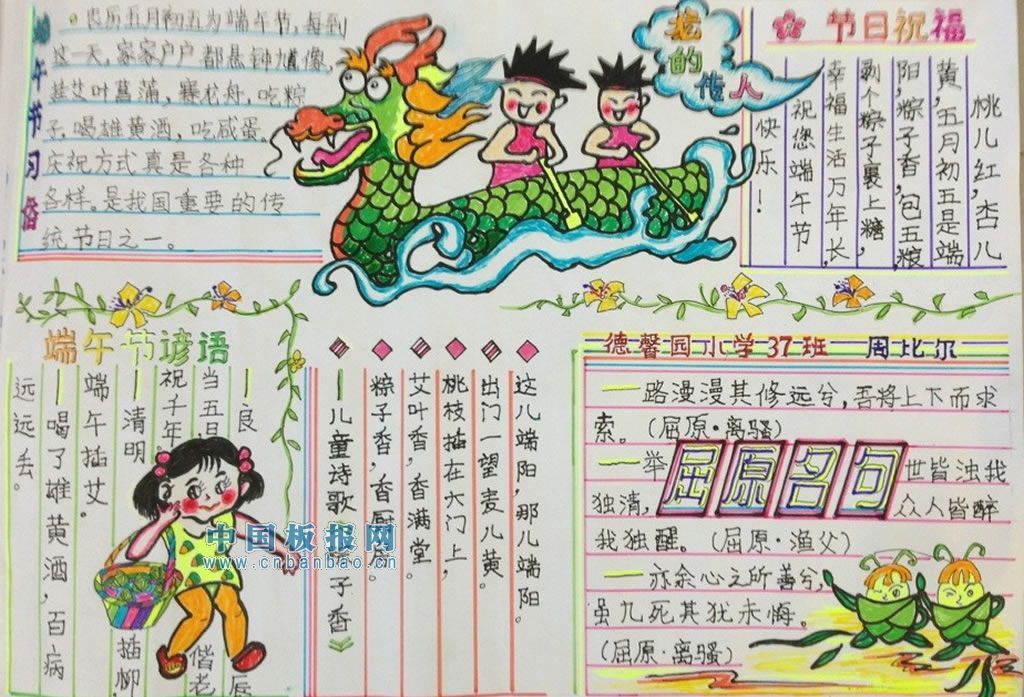 端午节习俗
农历五月初五为端午节,每到
这一天,家家户户都悬钟馗像,
挂艾叶菖蒲,赛龙舟,吃粽
子,喝雄黄酒,吃咸蛋.
庆祝方式真是各种
各样。是我国重要的传
统节日之一。
龙的传人
节日祝福
桃儿红,杏儿
黄,五月初五是端
阳,粽子香,包五粮
剥个粽子裹上糖,
幸福生活万年长,
祝您端午节
快乐!
端午节谚语
—良 辰
当五日 偕老
祝千年
—清明 插柳
端午插艾。
—喝了雄黄酒,百病
远远丢。
这儿端阳,那儿端阳。
出门一望麦儿黄。
桃枝插在大门上,
艾叶香,香满堂。
粽子香,香厨 。
—儿童诗歌 子香》
德馨园小学37班 周比尔
屈原名句
—路漫漫其修远兮,吾将上下而求
索。(屈原·离骚)
—举 世皆浊我
独清, 众人皆醉
我独醒。(屈原·渔父)
—亦余心之所善兮,
虽九死其犹未悔。
(屈原·离骚)
中国板报网
www.cnbanbao.cn